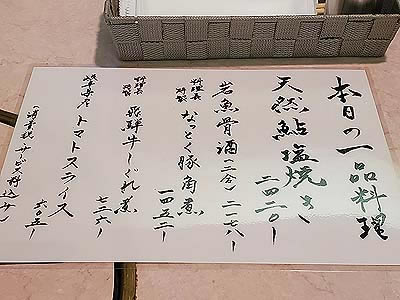 本日の一品料理
天然鮎塩焼き
二四二〇ー
岩魚骨酒(二合)二一六一ー
料理長特製
なっとく豚角煮
一四五二ー
料理長特製
飛騨牛しぐれ煮
七二六ー
岐阜県産
トマトスライス
六〇五ー
(消費税・サービス料込み)